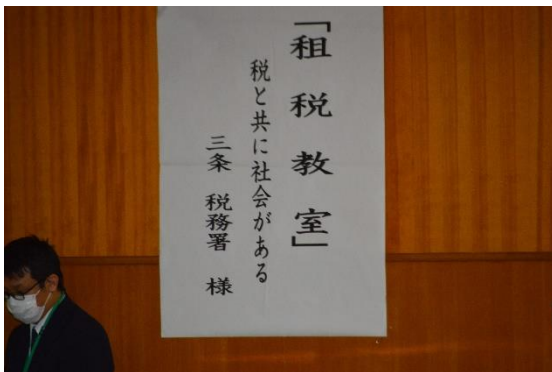 「租税教室」
税と共に社会がある
三条 税務署 様